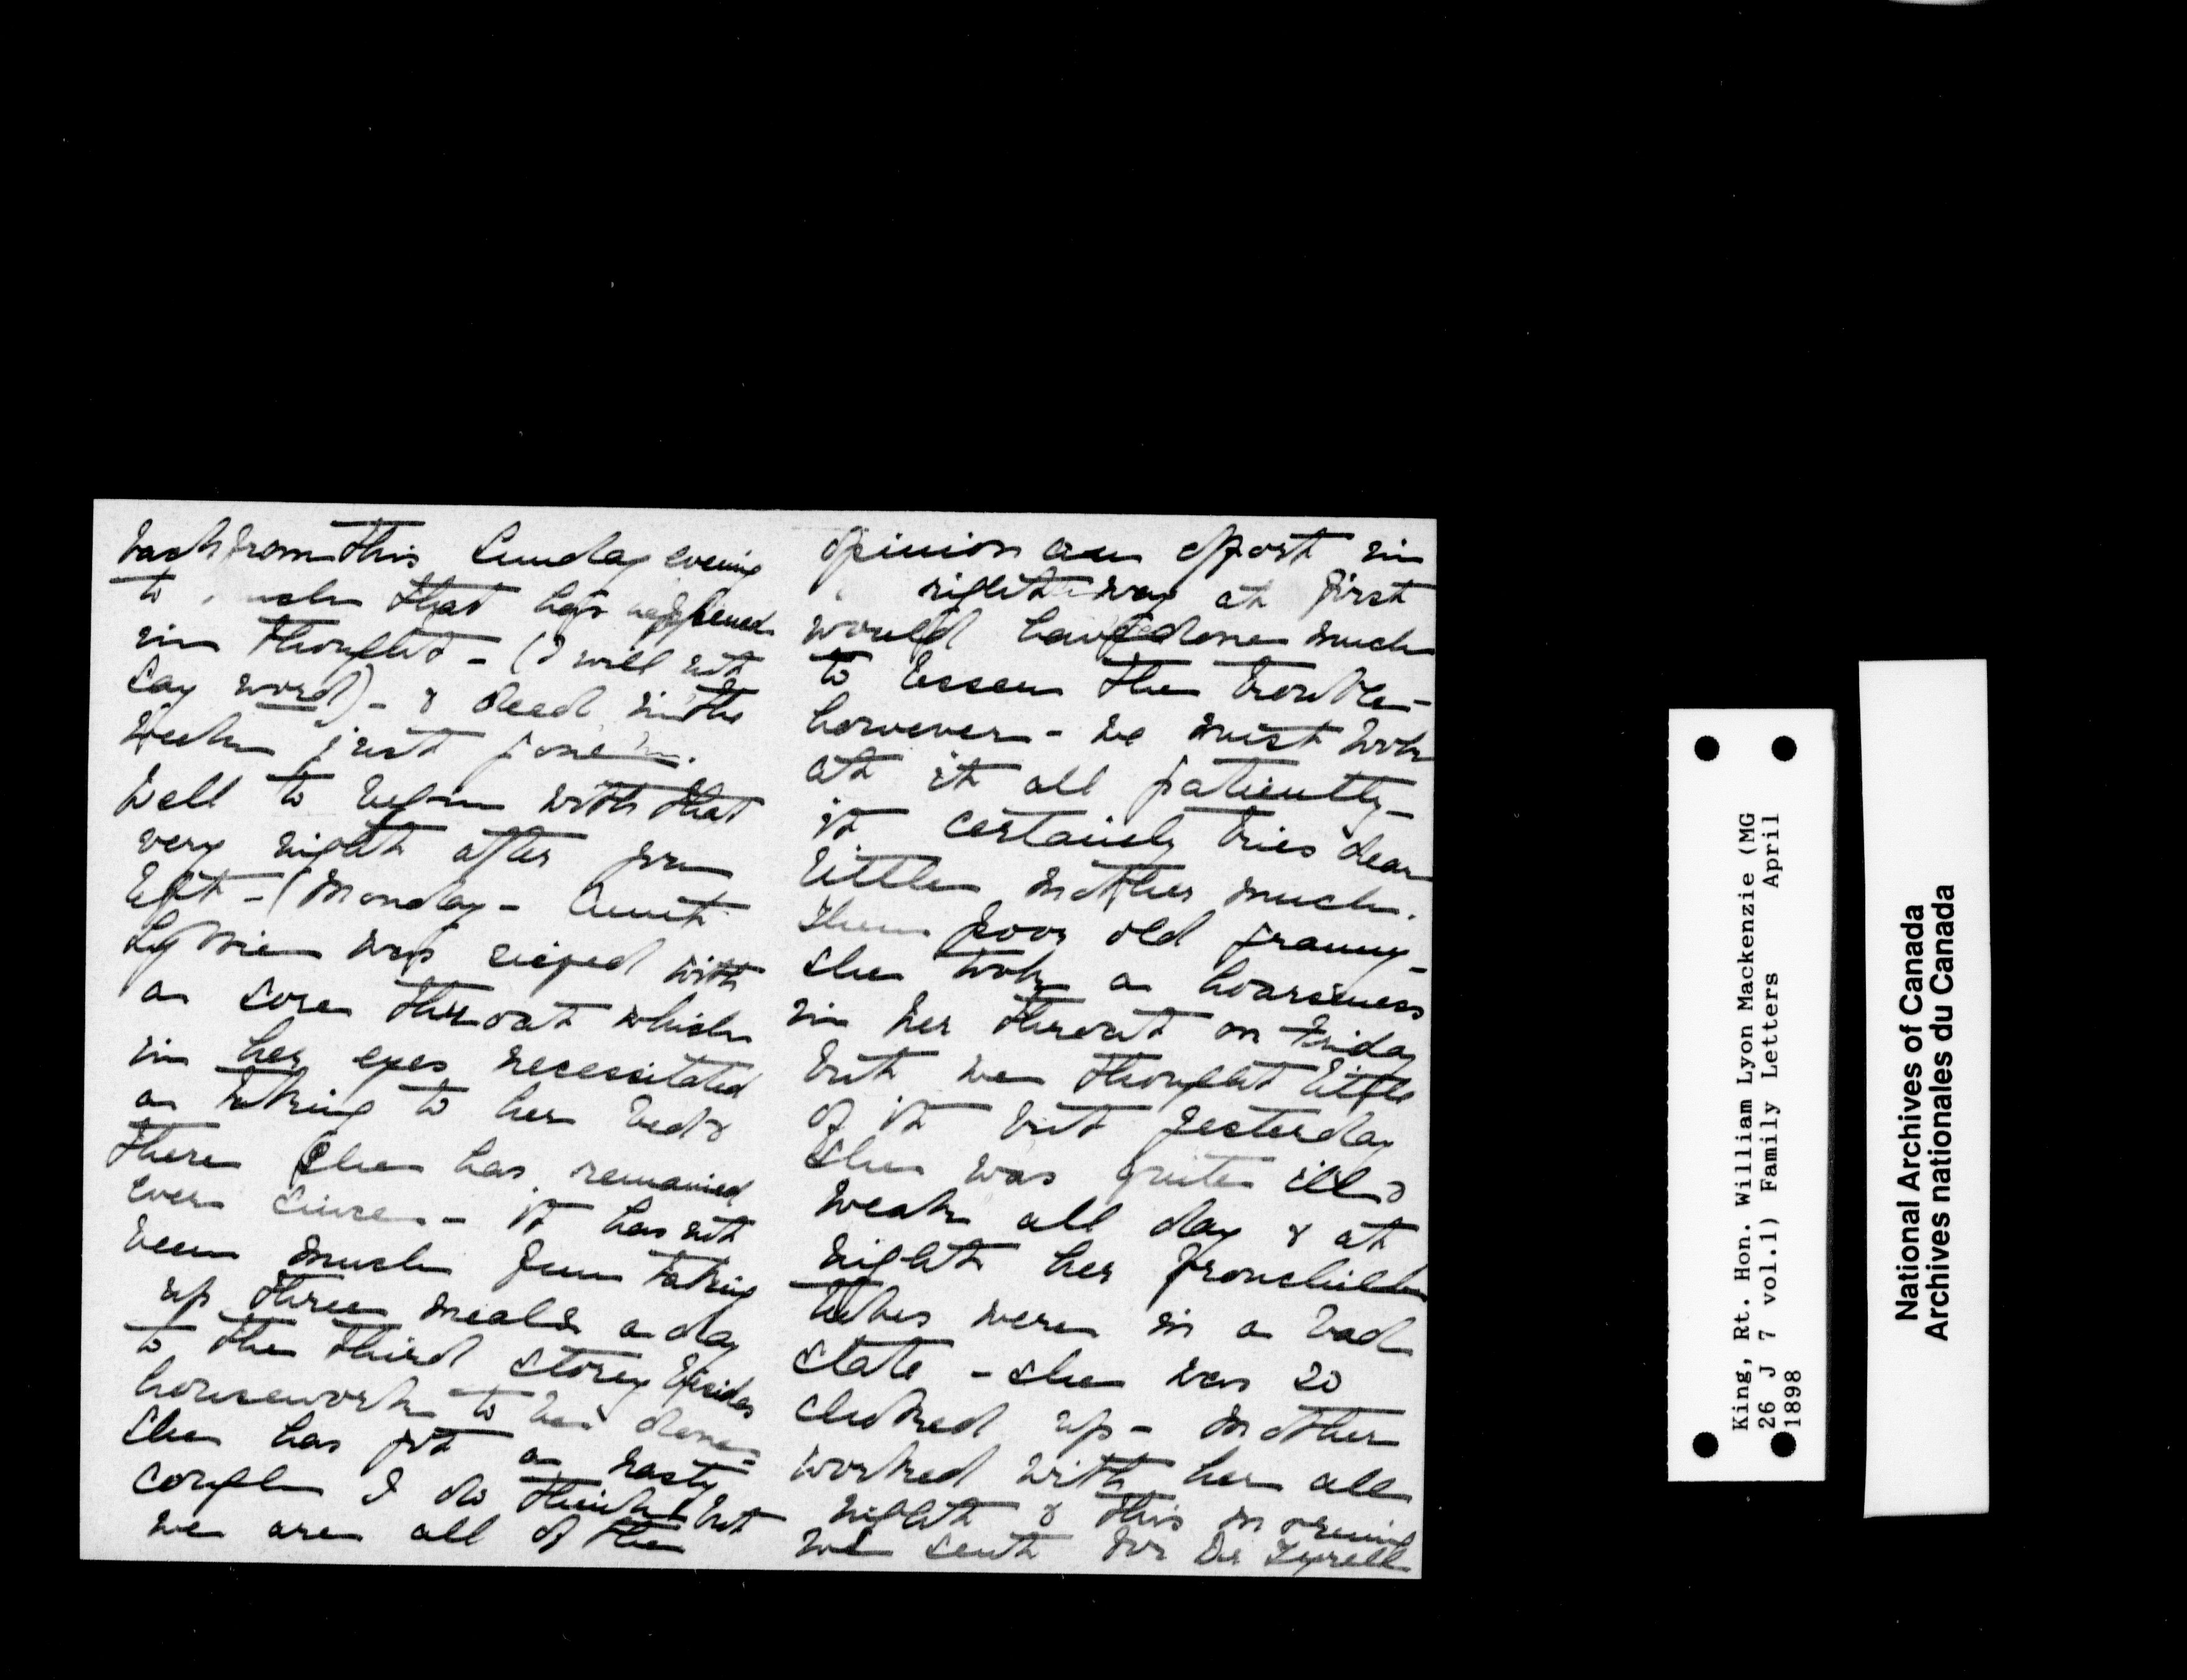 back from this Sunday evening
to much that has happened
in thought - (I will not
say word) - & deed in the
week just gone.
Well to begin with that
very night after you
left - (Monday - Aunt
Libbie was seized with
a sore throat which
in her eyes necessitated
a taking to her bed &
there she has remained
ever since - it has not
been much fun taking
up three meals a day
to the third storey besides
housework to be done -
She has got a nasty
cough I do think but
we are all of the
opinion an effort in
right way at first
would have done much
to lessen the trouble -
however - we must look
at it all patiently -
it certainly tries dear
little mother much.
Then poor old granny -
she took a hoarseness
in her throat on Friday
but we thought little
of it but yesterday
she was quite ill &
weak all day & at
night her bronchial
tubes were in a bad
state - she was so
choked up - mother
worked with her all
night & this morning
we sent for Dr Tyrell
King, Rt. Hon. William Lyon Mackenzie (MG
26 J 7 vol.1) Family Letters April
1898
National Archives of Canada
Archives nationales du Canada